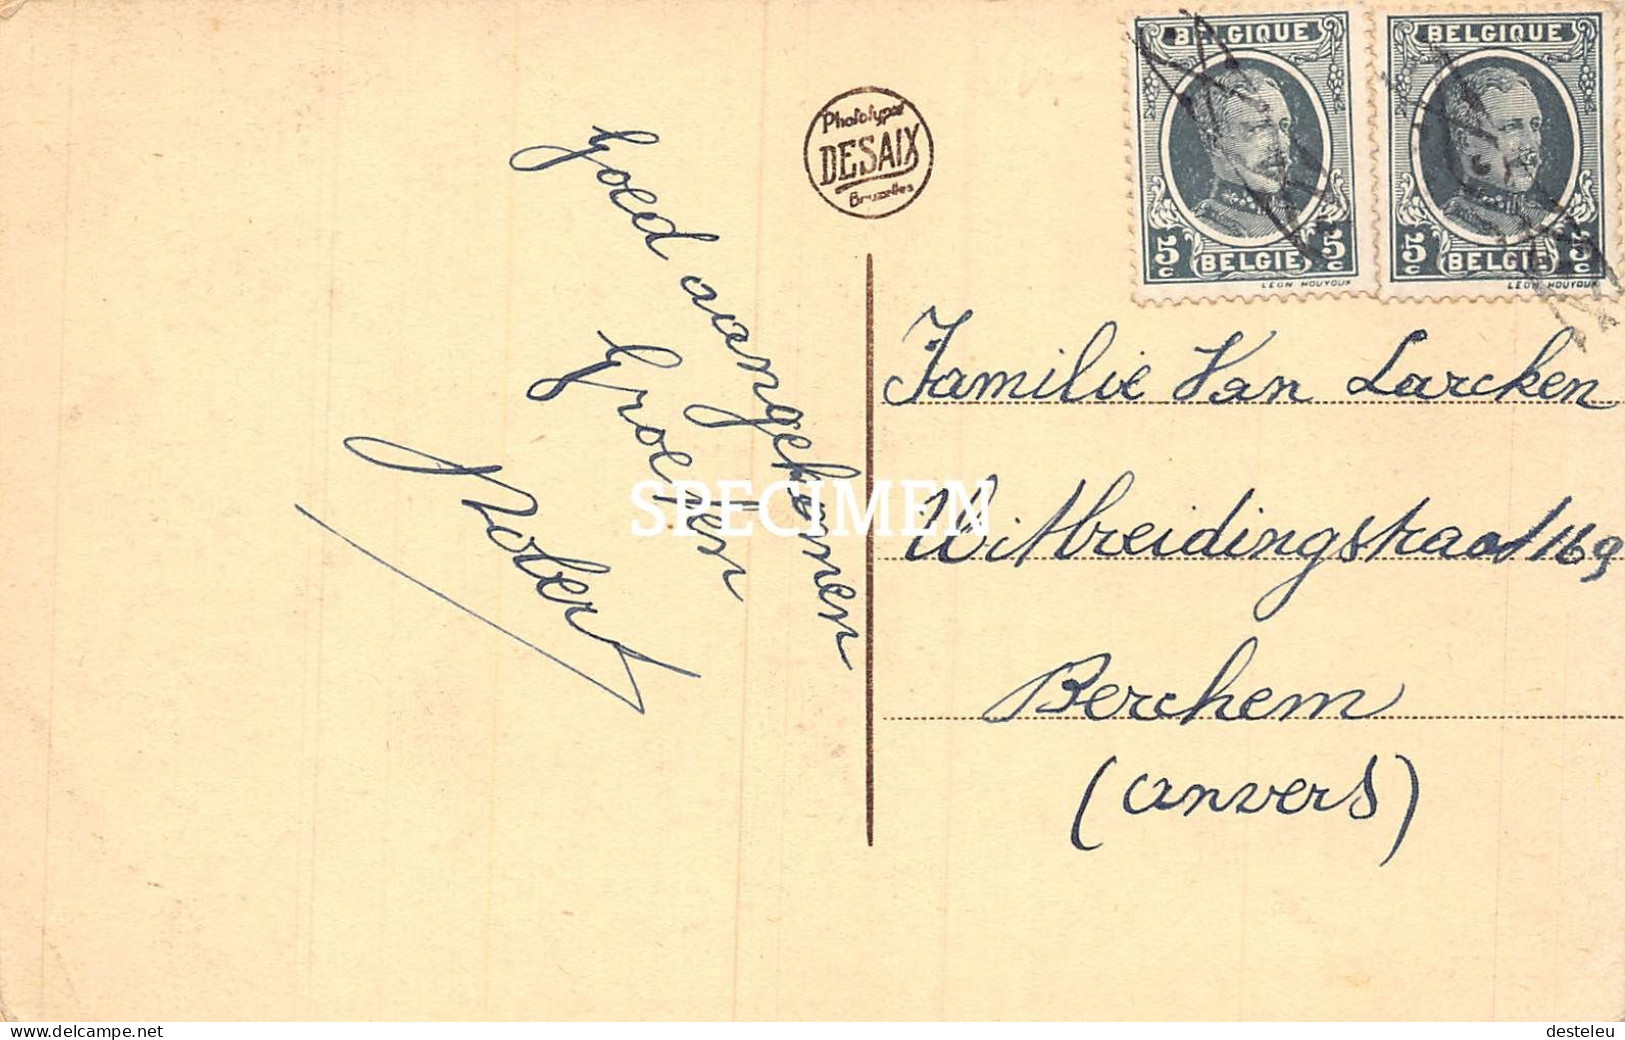 Goed aangekomen
Groeten
Robert
Phototypie
DESAIX
Bruxelles
BELGIQUE
5c
5c
BELGIE
LEON HOUYOUX
BELGIQUE
5c
5c
BELGIE
LEON HOUYOUX
Familie Van Larcken
Uitbreidingstraat 169
Berchem
(Anvers)
SPECIMEN
www.delcampe.net
desteleu